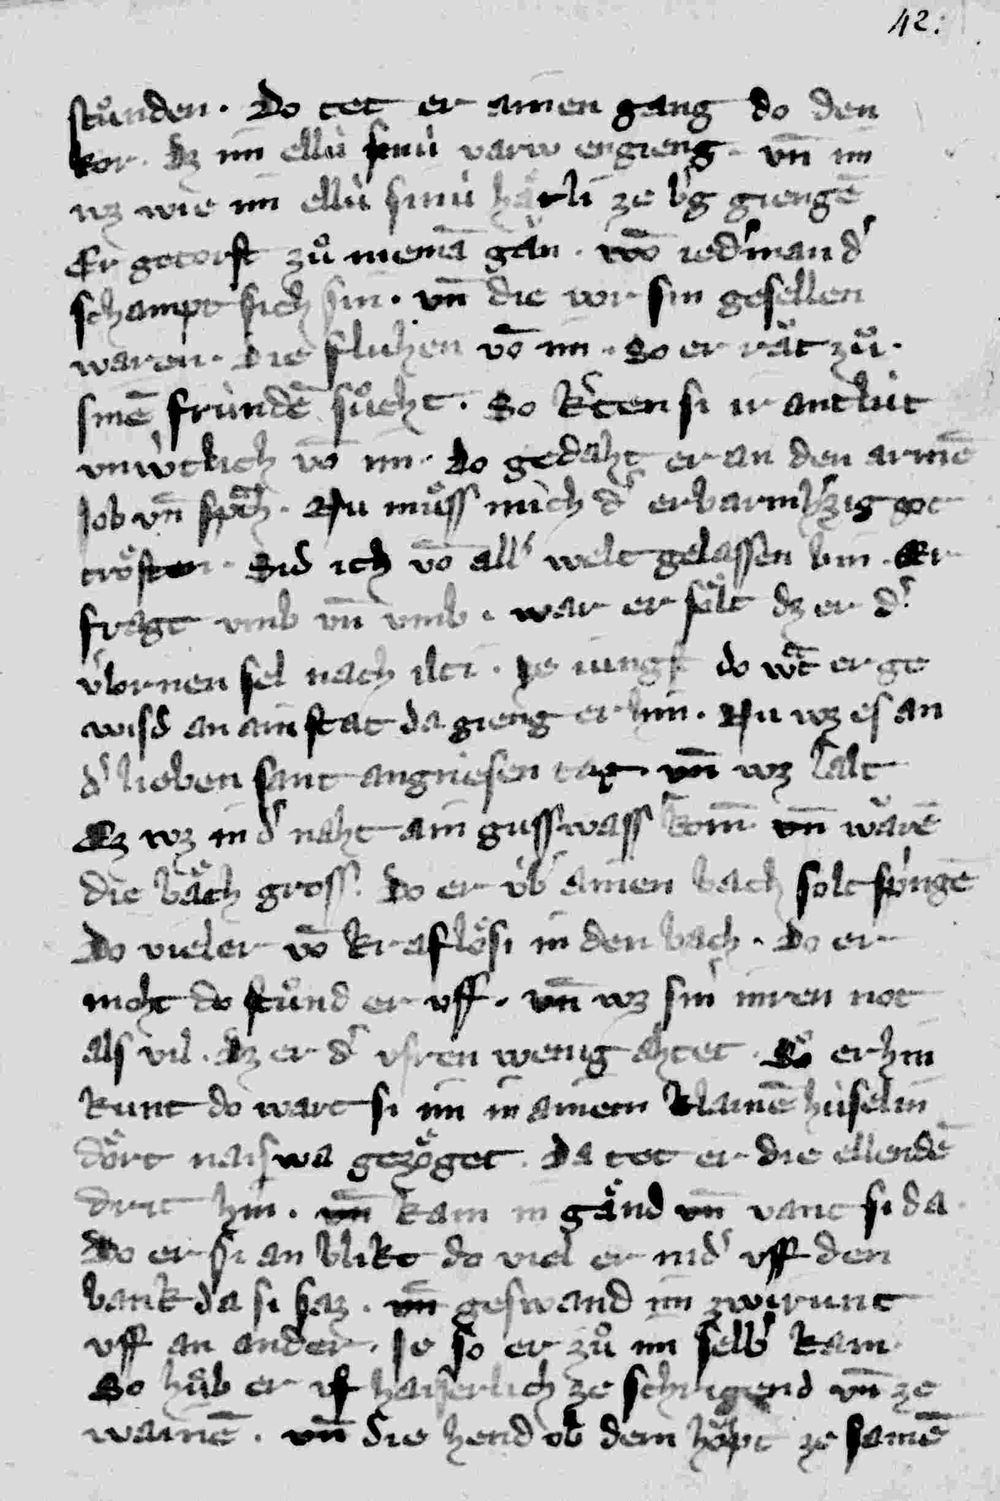 42.
stůnden. Do tet er ainen gang do den
kor. Dz im ellú sinú varw engieng. vn̄ im
wz wie im ellú sinú hårli ze b'g giengē
Er getorst zů niemā gān. wō ied'man d'
schampt sich sin. vn̄ die vor sin gesellen
waren. Die fluhen vō im. So er rāt zů
sinē frúndē sůcht. So k'ten si ir antlút
vnw'tlich vō im. Do gedaht er an den armē
Job vn̄ sp̄ch. Nu můss mich d' erbarmh'zig got
trösten. Sid ich vō all' welt gelassen bin. Er
fragt vmb vn̄ vmb. war er sölt dz er d'
v'lornen sel nach ilti. ze iungst do w't er ge
wisd an ain stat da gieng er hin. Nu wz es an
d' lieben sant angnesen tag. vn̄ wz kalt
Ez wz in d' naht ain gusswass' kom̄. vn̄ wårē
die båch gross. Do er v́b' ainen bach solt springē
Do viel er vō kraflösi in den bach. Do er
moht do stůnd er vff. vn̄ wz sin inren not
als vil. Dz er d' vsren wenig ahtet. Do er hin
kunt do wart si im in ainem klainē húselin
dört naiswa gezöget. Da tet er die ellendē
drit hin. vn̄ kam in gånd vn̄ vant si da.
Do er si an blikt do viel er nid' vff den
bank da si saz. vn̄ geswand im zwirunt
vff an ander. Je so er zů im selb' kam
So hůb er vf haiserlich ze schrigend vn̄ ze
wainē. vn̄ die hend ob dem höpt ze samē